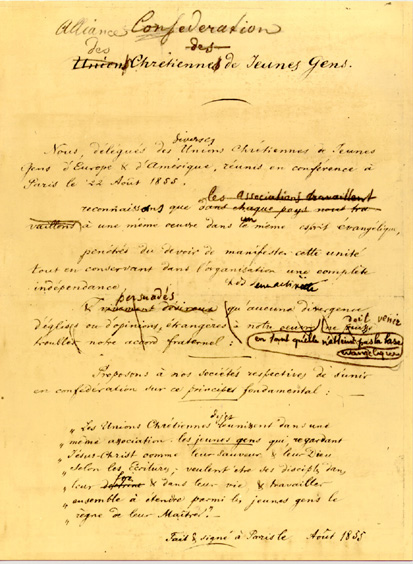 Alliance Confédération
des des
Unions Chrétiennes de Jeunes Gens.
diverses
Nous, délégués des Unions Chrétiennes de Jeunes
Gens d'Europe & d'Amérique, réunies en conférence à
Paris le 22 Août 1855,
les associations travaillent
reconnaissons que dans chaque pays nous tra
vaillons à une même œuvre dans un même esprit évangélique,
pénétrés du devoir de manifester cette unité
tout en conservant dans l'organisation une complète
indépendance,
persuadés
& qu'aucune divergence
d'églises ou d'opinions, étrangères à notre œuvre, ne doit venir
troubler notre accord fraternel :
Proposons à nos Sociétés respectives de s'unir
en confédération sur ce principe fondamental :
„ Les Unions Chrétiennes réunissent dans une
„ même association les jeunes gens qui, regardant
„ Jésus-Christ comme leur Sauveur & leur Dieu
„ selon les Écritures, veulent être ses disciples dans
foi
„ leur & dans leur vie & travailler
„ ensemble à étendre parmi les jeunes gens le
„ règne de leur Maître."
Fait & signé à Paris le Août 1855